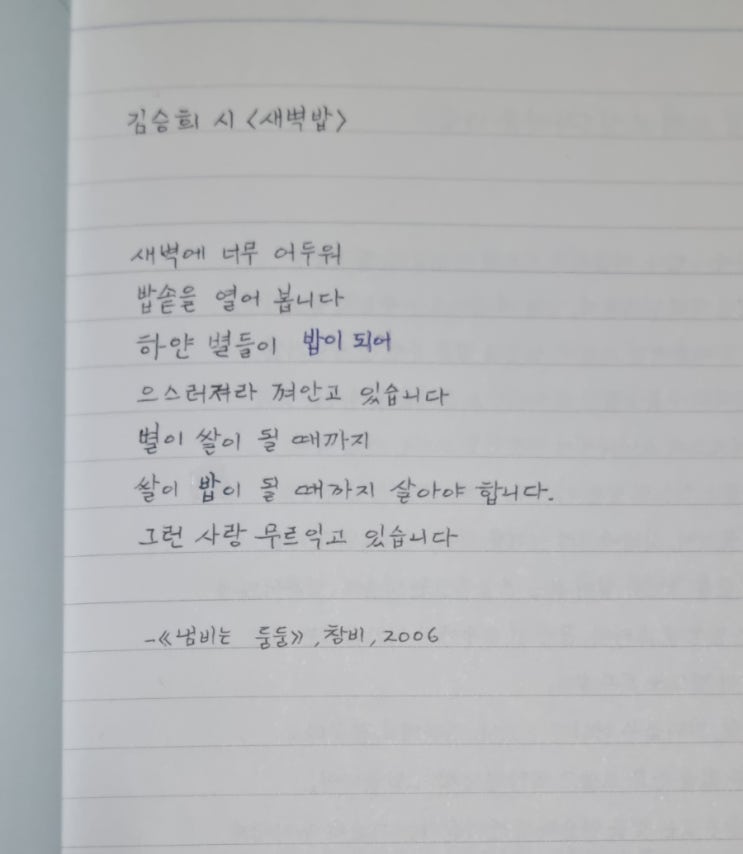 김승희 시 <새벽밥>
새벽에 너무 어두워
밥솥을 열어 봅니다
하얀 별들이 밥이 되어
으스러져라 껴안고 있습니다
별이 쌀이 될 때까지
쌀이 밥이 될 때까지 살아야 합니다.
그런 사랑 무르익고 있습니다
-《냄비는 둥둥》, 창비, 2006